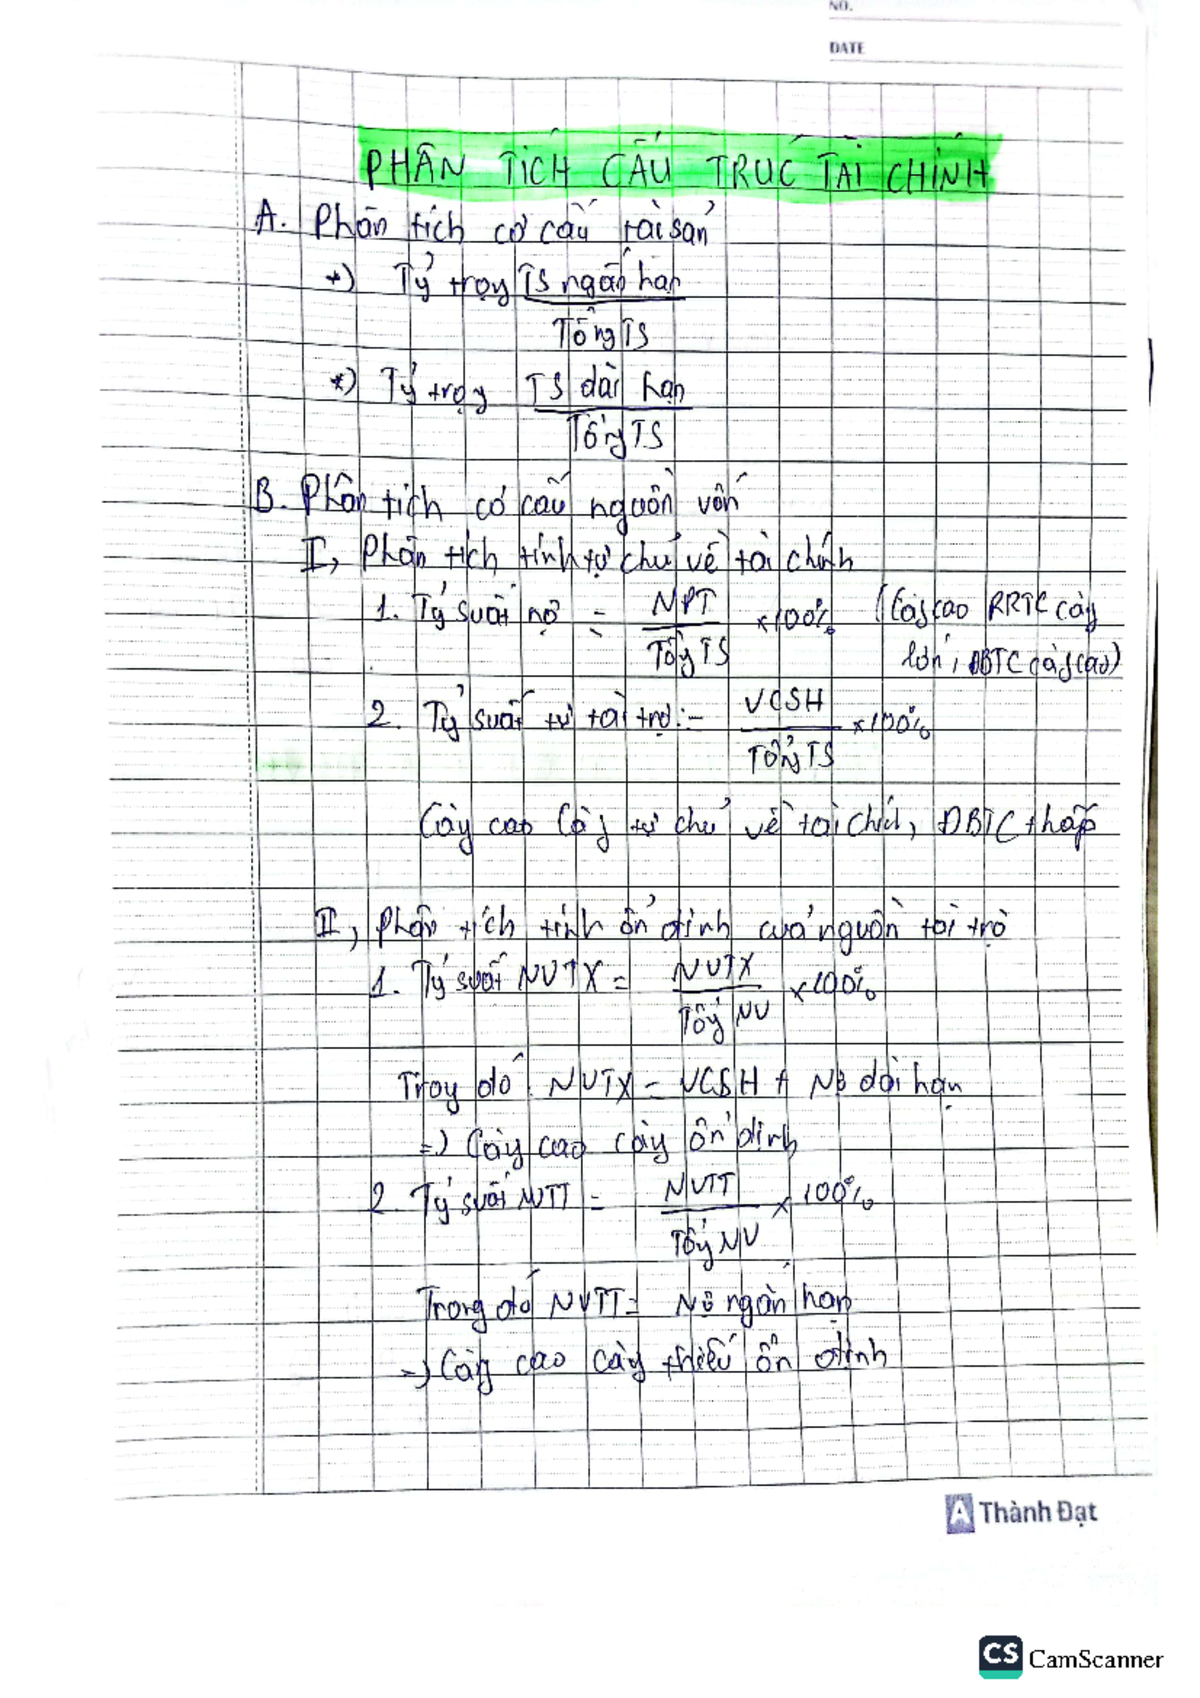 NO.
DATE
PHÂN TÍCH CẤU TRÚC TÀI CHÍNH
A. Phân tích cơ cấu tài sản
*) Tỷ trọng TS ngắn hạn
Tổng TS
*) Tỷ trọng TS dài hạn
Tổng TS
B. Phân tích cơ cấu nguồn vốn
I, Phân tích tính tự chủ về tài chính
1. Tỷ suất nợ = NPT x100% (Càng cao RRTC càng
Tổng TS lớn, ĐBTC càng cao)
2. Tỷ suất tự tài trợ = VCSH x100%
Tổng TS
Càng cao càng tự chủ về tài chính, ĐBTC thấp
II, Phân tích tính ổn định của nguồn tài trợ
1. Tỷ suất NVTX = NVTX x100%
Tổng NV
Trong đó: NVTX = VCSH + Nợ dài hạn
=) Càng cao càng ổn định
2. Tỷ suất NVTT = NVTT x 100%
Tổng NV
Trong đó NVTT = Nợ ngắn hạn
=) Càng cao càng thiếu ổn định
Thành Đạt
CS CamScanner